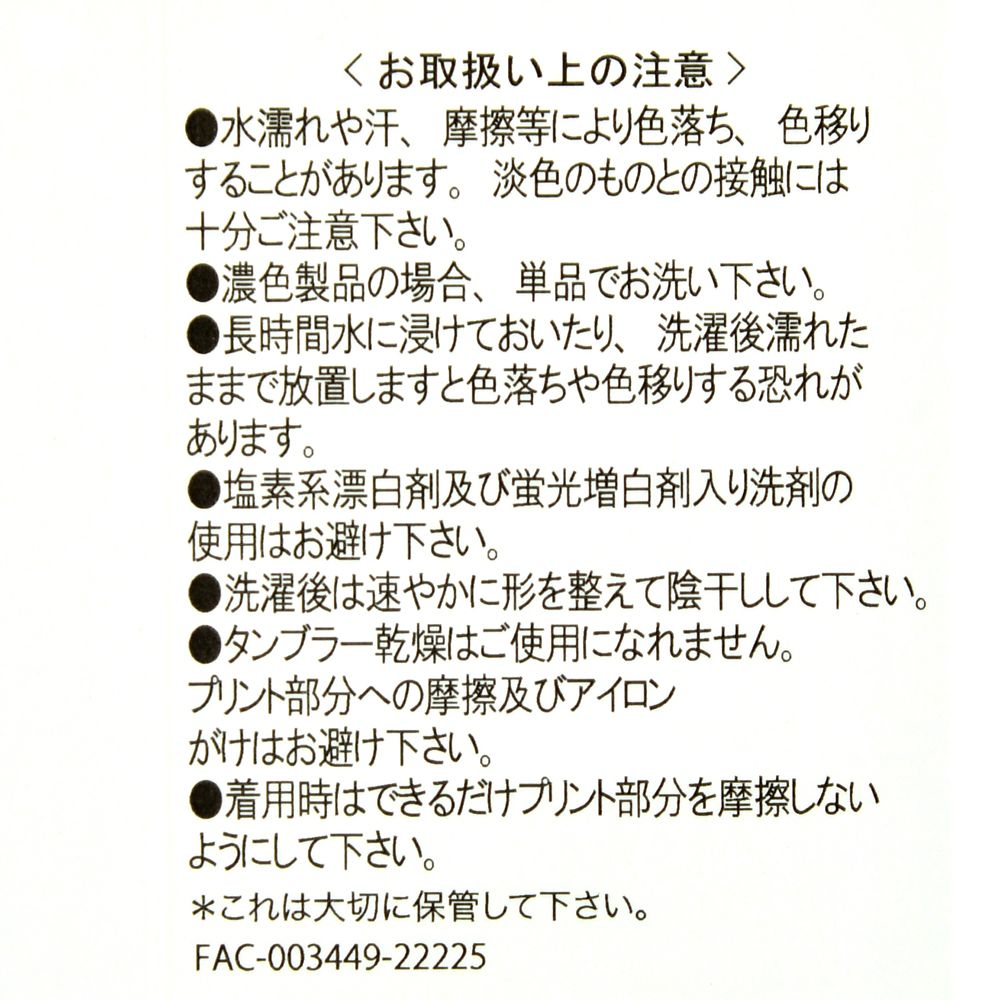 〈お取扱い上の注意〉
●水濡れや汗、摩擦等により色落ち、色移り
することがあります。淡色のものとの接触には
十分ご注意下さい。
●濃色製品の場合、単品でお洗い下さい。
●長時間水に浸けておいたり、洗濯後濡れた
ままで放置しますと色落ちや色移りする恐れが
あります。
●塩素系漂白剤及び蛍光増白剤入り洗剤の
使用はお避け下さい。
●洗濯後は速やかに形を整えて陰干しして下さい。
●タンブラー乾燥はご使用になれません。
プリント部分への摩擦及びアイロン
がけはお避け下さい。
●着用時はできるだけプリント部分を摩擦しない
ようにして下さい。
＊これは大切に保管して下さい。
FAC-003449-22225